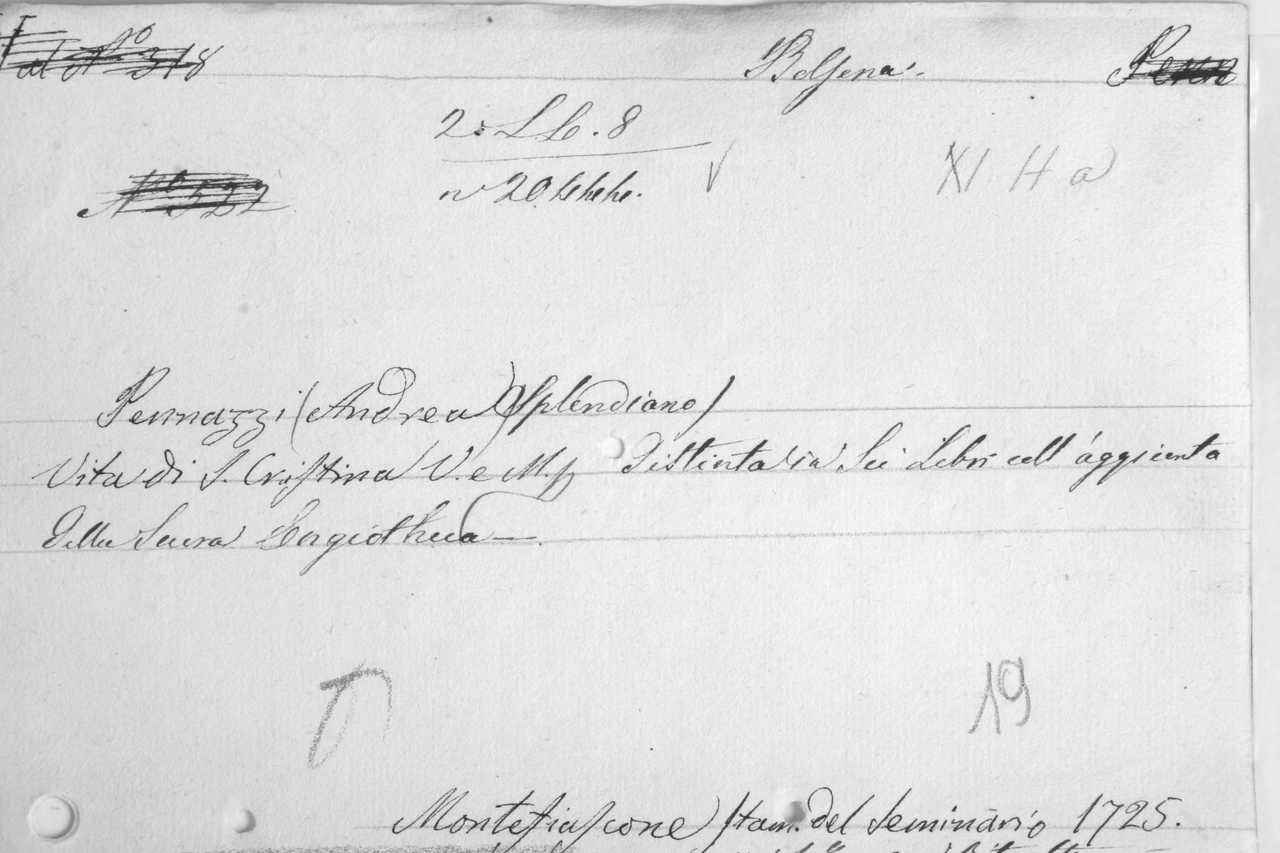 N.º 318 Bolsena. Penn
2: L b. 8
XI H a
Nº 522 n 20
Pennazzi (Andrea) (Splendiano)
Vita di S. Cristina V. e M. Distinta in Sei Libri coll'aggiunta
della Sacra
19
Montefiascone Stam. del Seminario 1725.